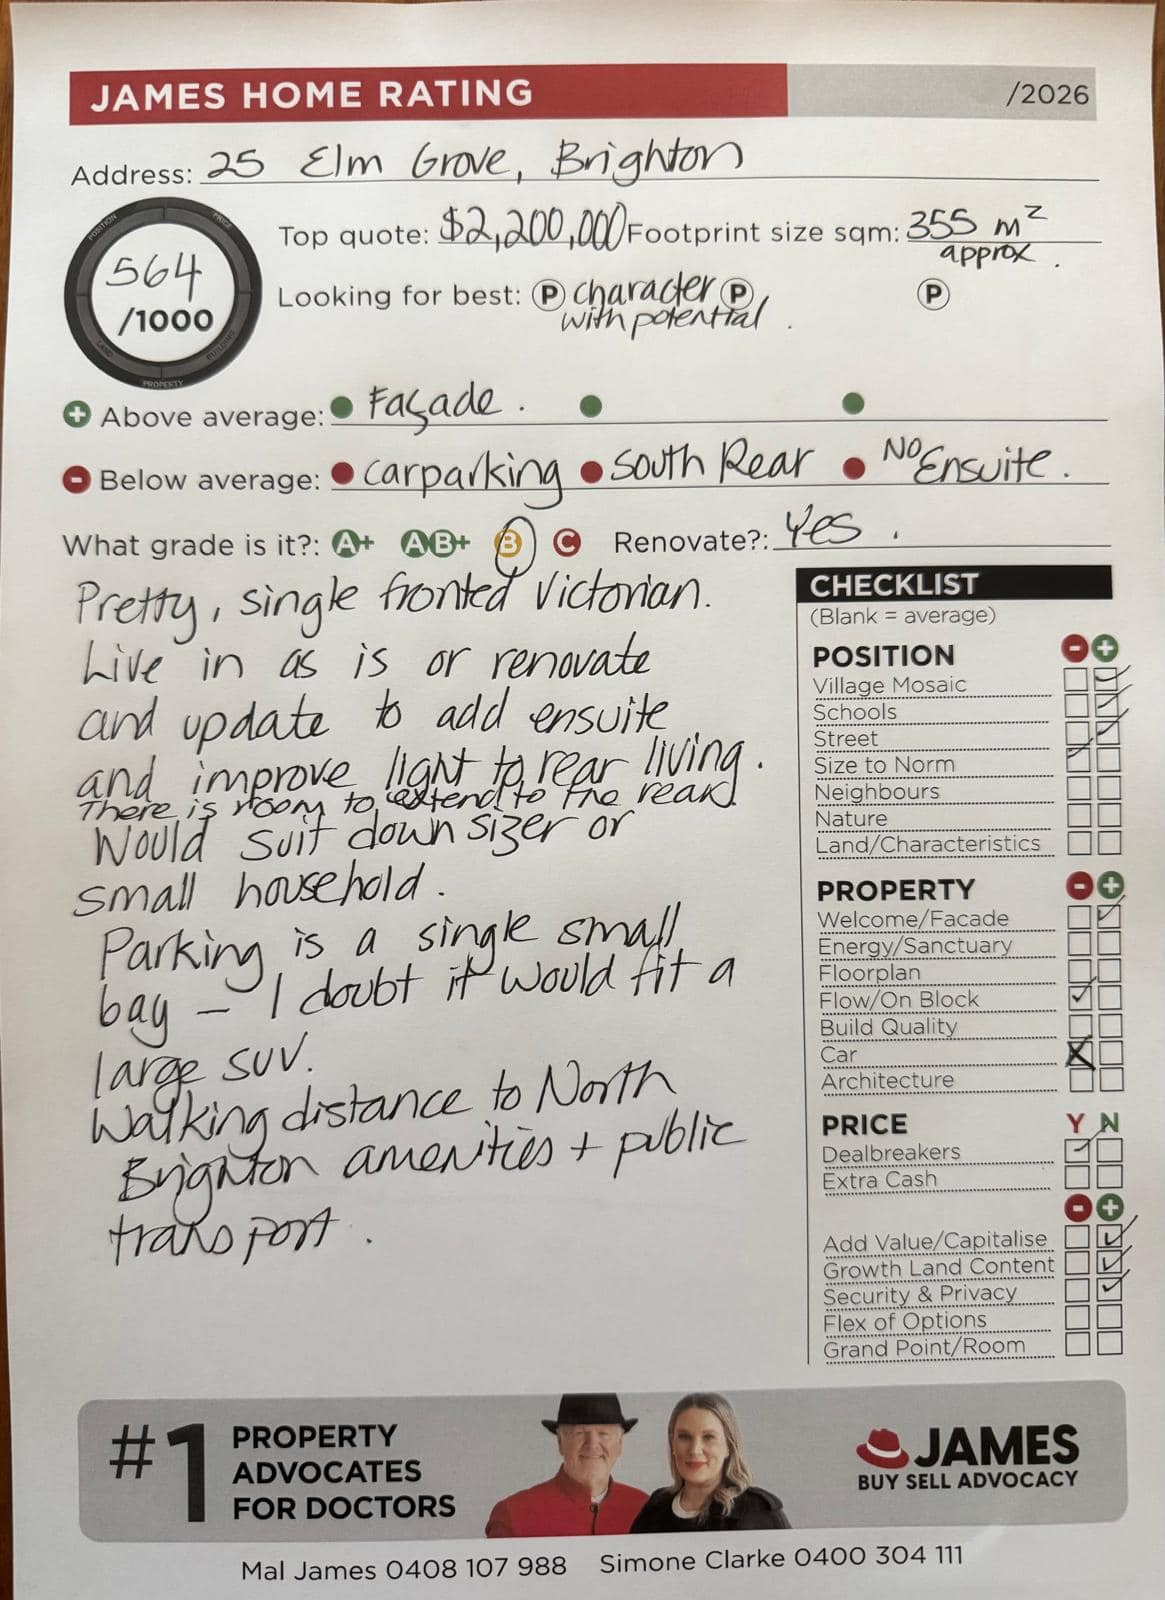 JAMES HOME RATING
/2026
Address: 25 Elm Grove, Brighton
Top quote: $2,200,000 Footprint size sqm: 355 m²
approx.
564
/1000
POSITION
PRICE
BUILDING
PROPERTY
LAND
Looking for best: P character P P
with potential.
Above average: Façade.
Below average: carparking South Rear No Ensuite.
What grade is it?: A+ AB+ B C Renovate?: Yes.
Pretty, single fronted Victorian.
Live in as is or renovate
and update to add ensuite
and improve light to rear living.
There is room to extend to the rear.
Would suit downsizer or
small household.
Parking is a single small
bay – I doubt it would fit a
large SUV.
Walking distance to North
Brighton amenities + public
transport.
CHECKLIST
(Blank = average)
POSITION - +
Village Mosaic
Schools
Street
Size to Norm
Neighbours
Nature
Land/Characteristics
PROPERTY - +
Welcome/Facade
Energy/Sanctuary
Floorplan
Flow/On Block
Build Quality
Car
Architecture
PRICE Y N
Dealbreakers
Extra Cash
- +
Add Value/Capitalise
Growth Land Content
Security & Privacy
Flex of Options
Grand Point/Room
#1 PROPERTY
ADVOCATES
FOR DOCTORS
JAMES
BUY SELL ADVOCACY
Mal James 0408 107 988 Simone Clarke 0400 304 111